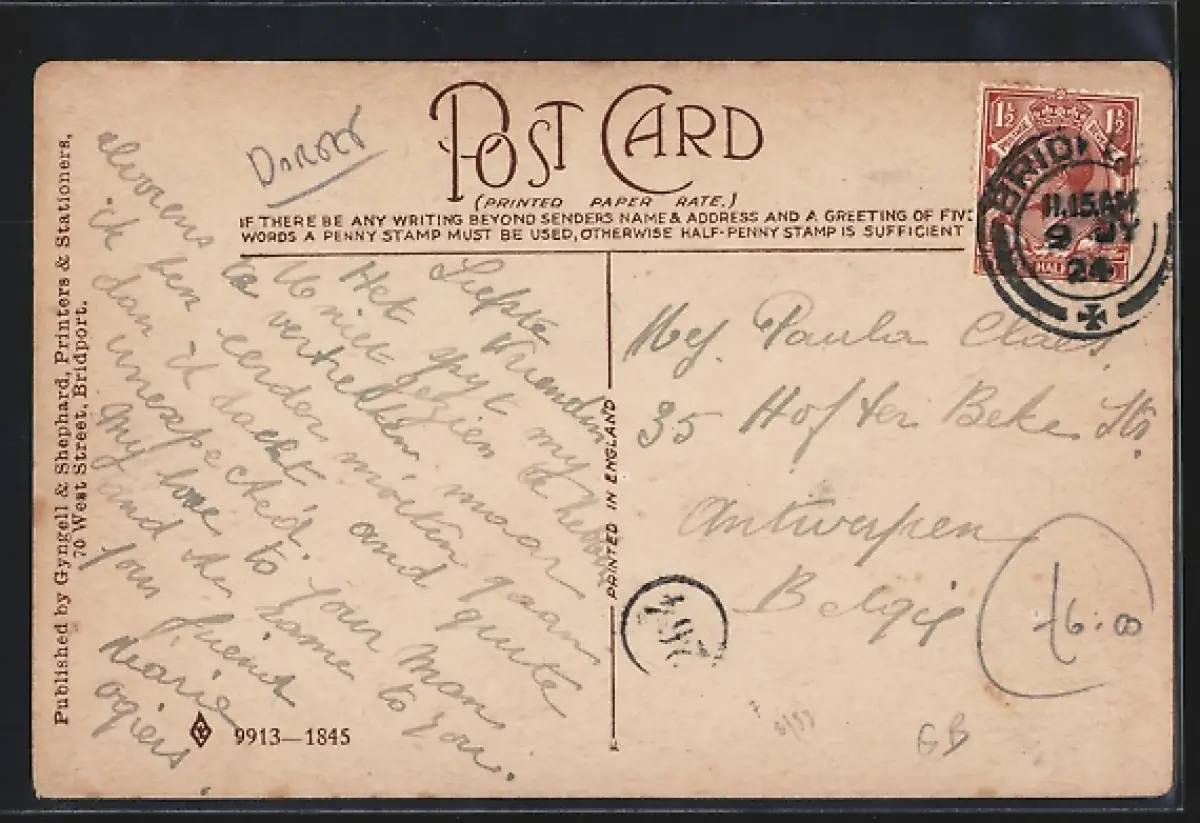 Dorset
POST CARD
(PRINTED PAPER RATE.)
IF THERE BE ANY WRITING BEYOND SENDERS NAME & ADDRESS AND A GREETING OF FIVE
WORDS A PENNY STAMP MUST BE USED, OTHERWISE HALF-PENNY STAMP IS SUFFICIENT
1½ 1½
HALF
BRID
11.15AM
9 JY
24
Published by Gyngell & Shephard, Printers & Stationers,
70 West Street, Bridport.
Liefste Vriendin
Het spyt my
U niet gezien te hebben
te vertrekken, maar
alvorens
ik ben eerder moeten gaan
dan ik dacht and quite
unexpected.
My love to your man
and the same to you.
your friend
Maria
Ogiers.
PRINTED IN ENGLAND
Mej. Paula Claes
35 Hof ter Beke Str
Antwerpen
Belgie
6:00
GB
9913—1845